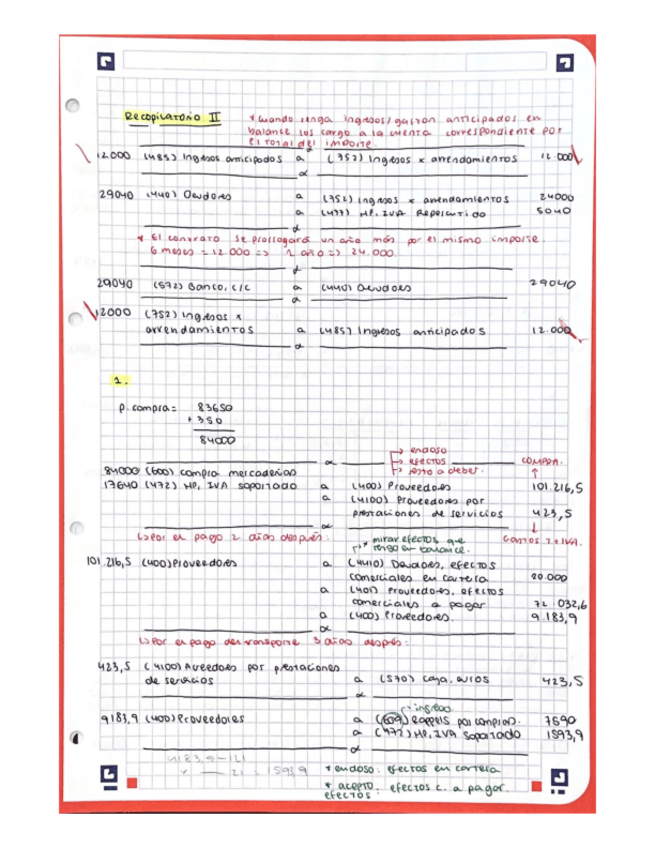 Recopilatorio II
* Cuando tenga ingresos/gastos anticipados en
balance los cargo a la cuenta correspondiente por
el total del importe.
12.000 (485) Ingresos anticipados a (752) Ingresos x arrendamientos 12.000
29040 (440) Deudores a (752) ingresos x arrendamientos 24000
a (477) HP, IVA Repercutido 5040
* El contrato se prorrogará un año más por el mismo importe.
6 meses = 12.000 => 1 año => 24.000.
29040 (572) Banco, c/c a (440) Deudores 29040
12000 (752) ingresos x
arrendamientos a (485) Ingresos anticipados 12.000
1.
p. compra = 83650
+ 350
84000
→ endoso
→ efectos COMPRA.
→ resto a deber.
84000 (600) compra mercaderías
17640 (472) HP, IVA soportado a (400) Proveedores 101.216,5
a (4100) Proveedores por
prestaciones de servicios 423,5
↳ por el pago 2 días después: * mirar efectos que tengo en balance. Gastos T + IVA.
101.216,5 (400) Proveedores a (4410) Deudores, efectos
comerciales en cartera 20.000
a (401) proveedores, efectos
comerciales a pagar 72.032,6
a (400) Proveedores. 9.183,9
↳ por el pago del transporte 3 días después:
423,5 (4100) Acreedores por prestaciones
de servicios a (570) caja, euros 423,5
→ ingreso
9183,9 (400) Proveedores a (609) Rappels por compras. 7590
a (472) HP, IVA Soportado 1593,9
9183,9 – 121
x — 21 = 1593,9
* endoso: efectos en cartera
* acepto efectos: efectos c. a pagar.